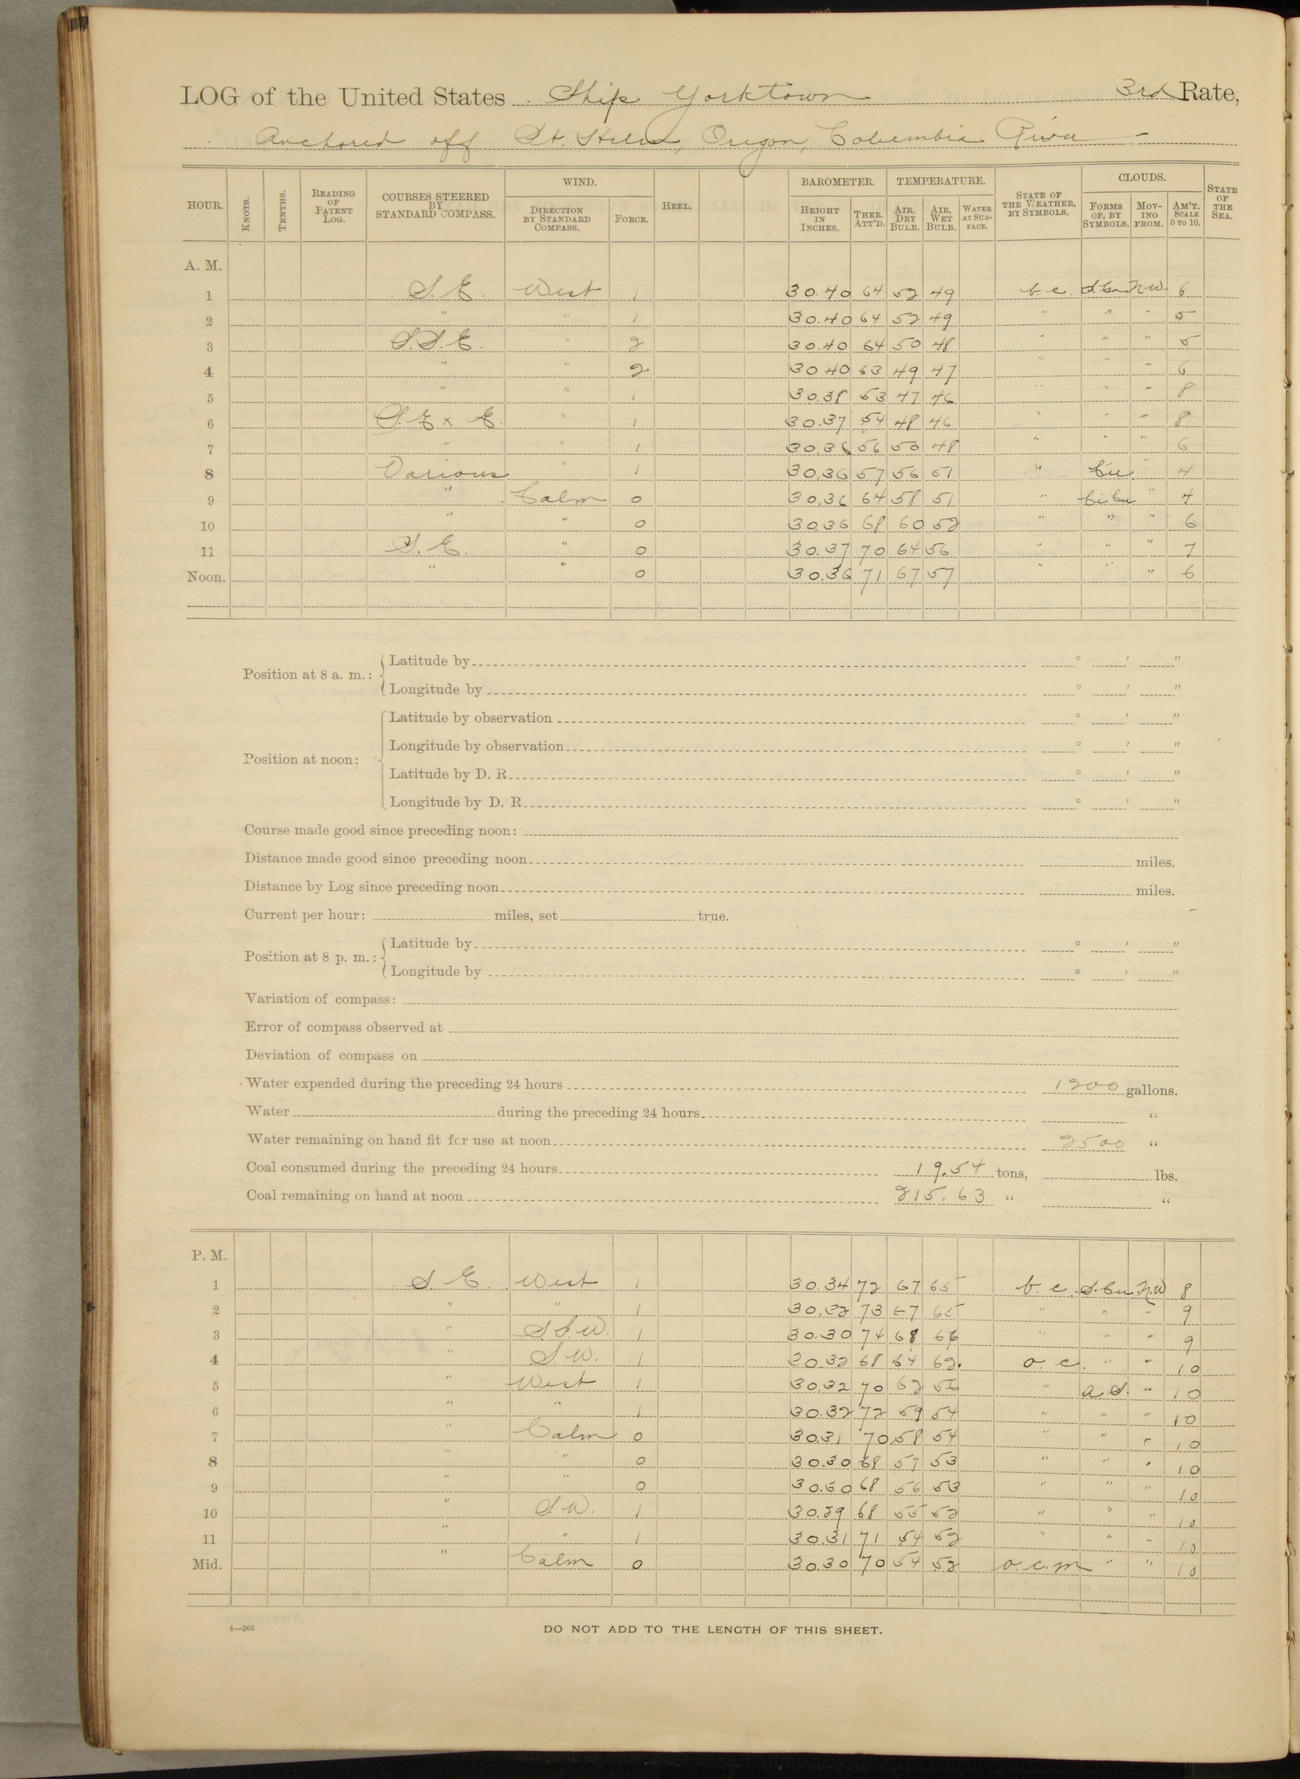 LOG of the United States Ship Yorktown 3rd Rate,
Anchored off St. Helens, Oregon, Columbia River
HOUR. KNOTS. TENTHS. READING OF PATENT LOG. COURSES STEERED BY STANDARD COMPASS. WIND. DIRECTION BY STANDARD COMPASS. FORCE. HEEL. BAROMETER. HEIGHT IN INCHES. THER. ATT'D. TEMPERATURE. AIR, DRY BULB. AIR, WET BULB. WATER AT SURFACE. STATE OF THE WEATHER, BY SYMBOLS. CLOUDS. FORMS OF, BY SYMBOLS. MOVING FROM. AM'T. SCALE 0 TO 10. STATE OF THE SEA.
A. M.
1 S.E. West 1 30.40 64 52 49 b.c. S.Cu N.W. 6
2 " " 1 30.40 64 52 49 " " " 5
3 S.S.E. " 2 30.40 64 50 48 " " " 5
4 " " 2 30 40 63 49 47 " " " 6
5 " " 1 30.38 53 47 46 " " " 8
6 S.E x E. " 1 30.37 54 48 46 " " " 8
7 " " 1 30.36 56 50 48 " " " 6
8 Various " 1 30.36 57 56 51 " " 4
9 " Calm 0 30.36 64 58 51 " Ci Cu " 4
10 " " 0 30.36 68 60 52 " " " 6
11 S.E. " 0 30.37 70 64 56 " " " 7
Noon. " " 0 30.36 71 67 57 " " " 6
Position at 8 a. m.: Latitude by ° ' "
Longitude by ° ' "
Position at noon: Latitude by observation ° ' "
Longitude by observation ° ' "
Latitude by D. R. ° ' "
Longitude by D. R. ° ' "
Course made good since preceding noon:
Distance made good since preceding noon miles.
Distance by Log since preceding noon miles.
Current per hour: miles, set true.
Position at 8 p. m.: Latitude by ° ' "
Longitude by ° ' "
Variation of compass:
Error of compass observed at
Deviation of compass on
Water expended during the preceding 24 hours 1200 gallons.
Water during the preceding 24 hours "
Water remaining on hand fit for use at noon 2500 "
Coal consumed during the preceding 24 hours 19.54 tons, lbs.
Coal remaining on hand at noon 215.63 " "
P. M.
1 S.E. West 1 30.34 72 67 65 b.c. S.Cu N.W 8
2 " " 1 30.32 73 67 65 " " " 9
3 " S.S.W. 1 30.30 74 68 66 " " " 9
4 " S.W. 1 30.32 68 64 62. o.c. " " 10
5 " West 1 30.32 70 62 56 " a.S. " 10
6 " " 1 30.32 72 59 54 " " " 10
7 " Calm 0 30.31 70 58 54 " " " 10
8 " " 0 30.30 68 57 53 " " " 10
9 " " 0 30.30 68 56 53 " " " 10
10 " S.W. 1 30.29 68 55 52 " " " 10
11 " " 1 30.31 71 54 52 " " " 10
Mid. " Calm 0 30.30 70 54 52 o.c.m " " 10
4—265
DO NOT ADD TO THE LENGTH OF THIS SHEET.